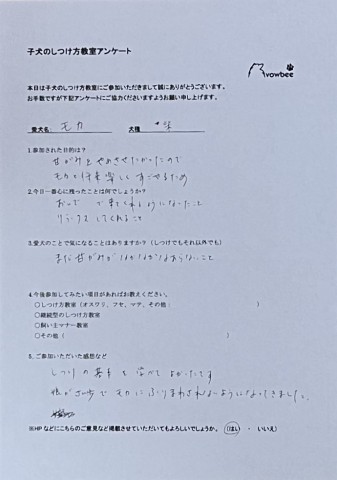 子犬のしつけ方教室アンケート
wowbee
本日は子犬のしつけ方教室にご参加いただきまして誠にありがとうございます。
お手数ですが下記アンケートにご協力くださいますようお願い申し上げます。
愛犬名: モカ 犬種
1.参加された目的は?
甘がみをやめさせたかったので
モカと仔楽しくすごせるため
2.今日一番心に残ったことは何でしょうか?
で来てくれるようになったこと
リラックスしてくれること
3.愛犬のことで気になることはありますか? (しつけでもそれ以外でも)
まだ甘がみがなかなかなおらないこと
4.今後参加してみたい項目があればお教えください。
○しつけ方教室 (オスワリ、フセ、マテ、その他: )
○継続型のしつけ方教室
○飼い主マナー教室
○その他 ( )
5.ご参加いただいた感想など
しつけの基本を学べてよかったです
娘がさんぽでモカにふりまわされないようになってきました。
※HPなどにこちらのご意見など掲載させていただいてもよろしいでしょうか。 (はい) ・ いいえ)